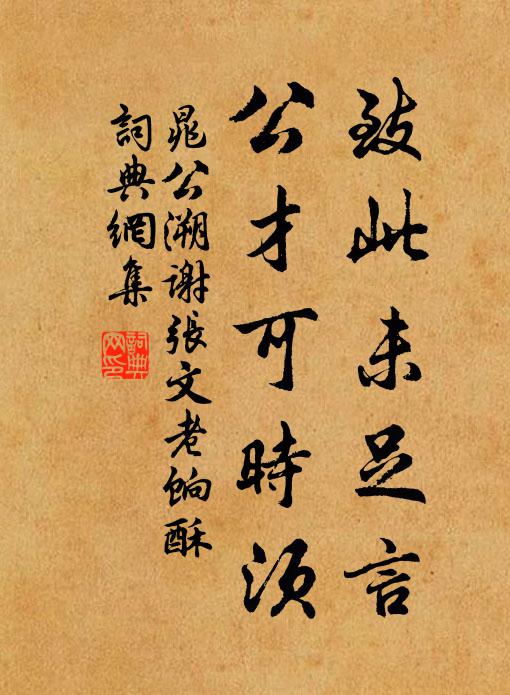 致此未足言
公才可時須
晁公溯謝張文老餉酥
詞典網集
詞典
网印